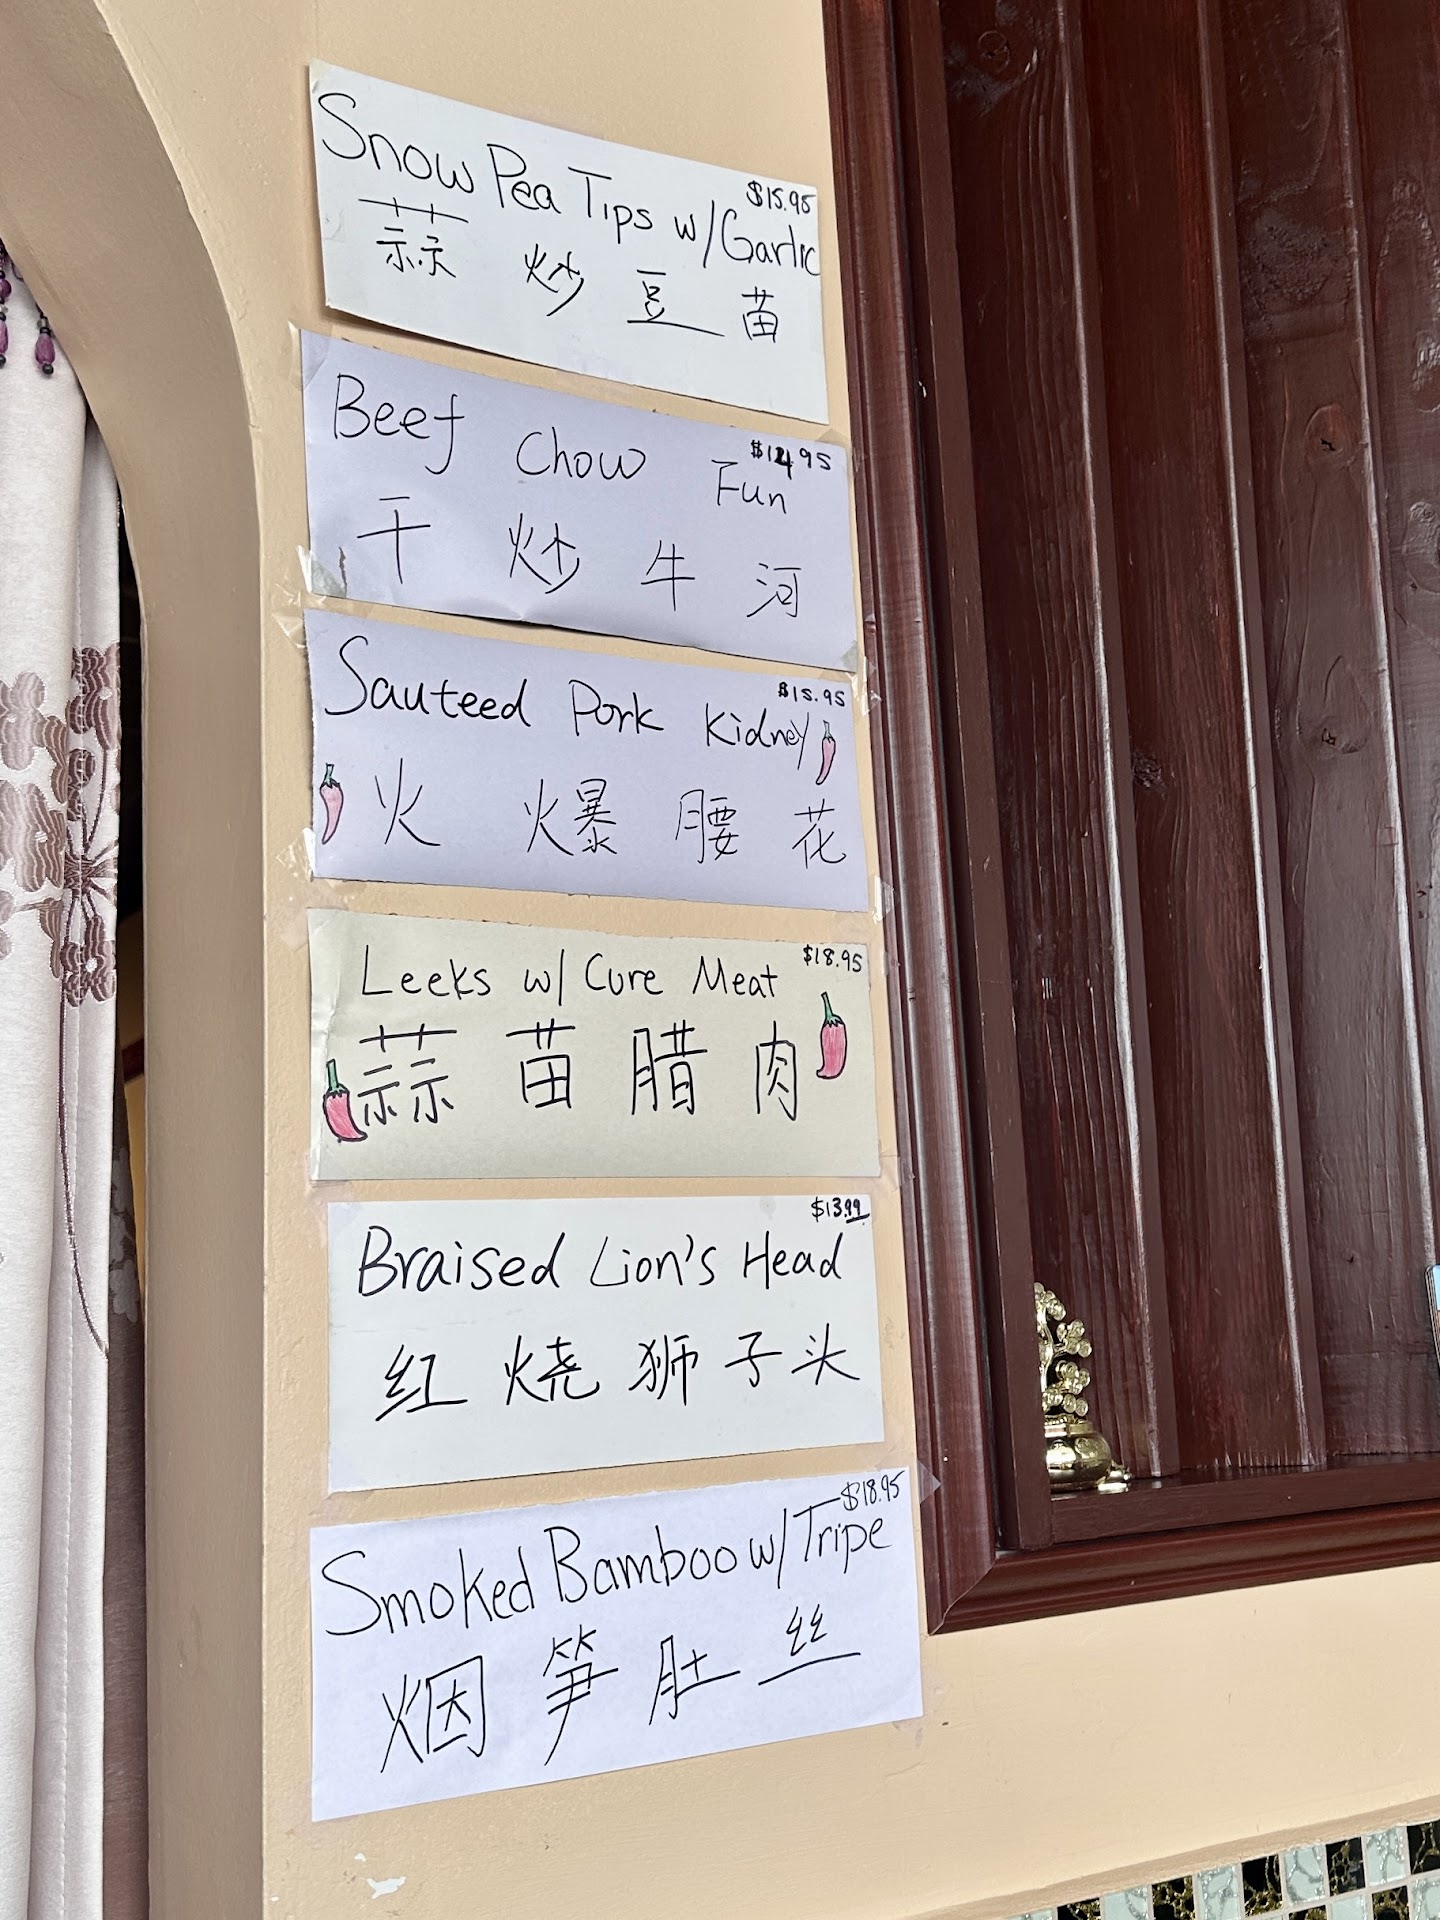 Snow Pea Tips w/Garlic $15.95
蒜炒豆苗
Beef Chow Fun $14.95
干炒牛河
Sauteed Pork Kidney $15.95
火爆腰花
Leeks w/ Cure Meat $18.95
蒜苗腊肉
Braised Lion's Head $13.99
红烧狮子头
Smoked Bamboo w/Tripe $18.95
烟笋肚丝